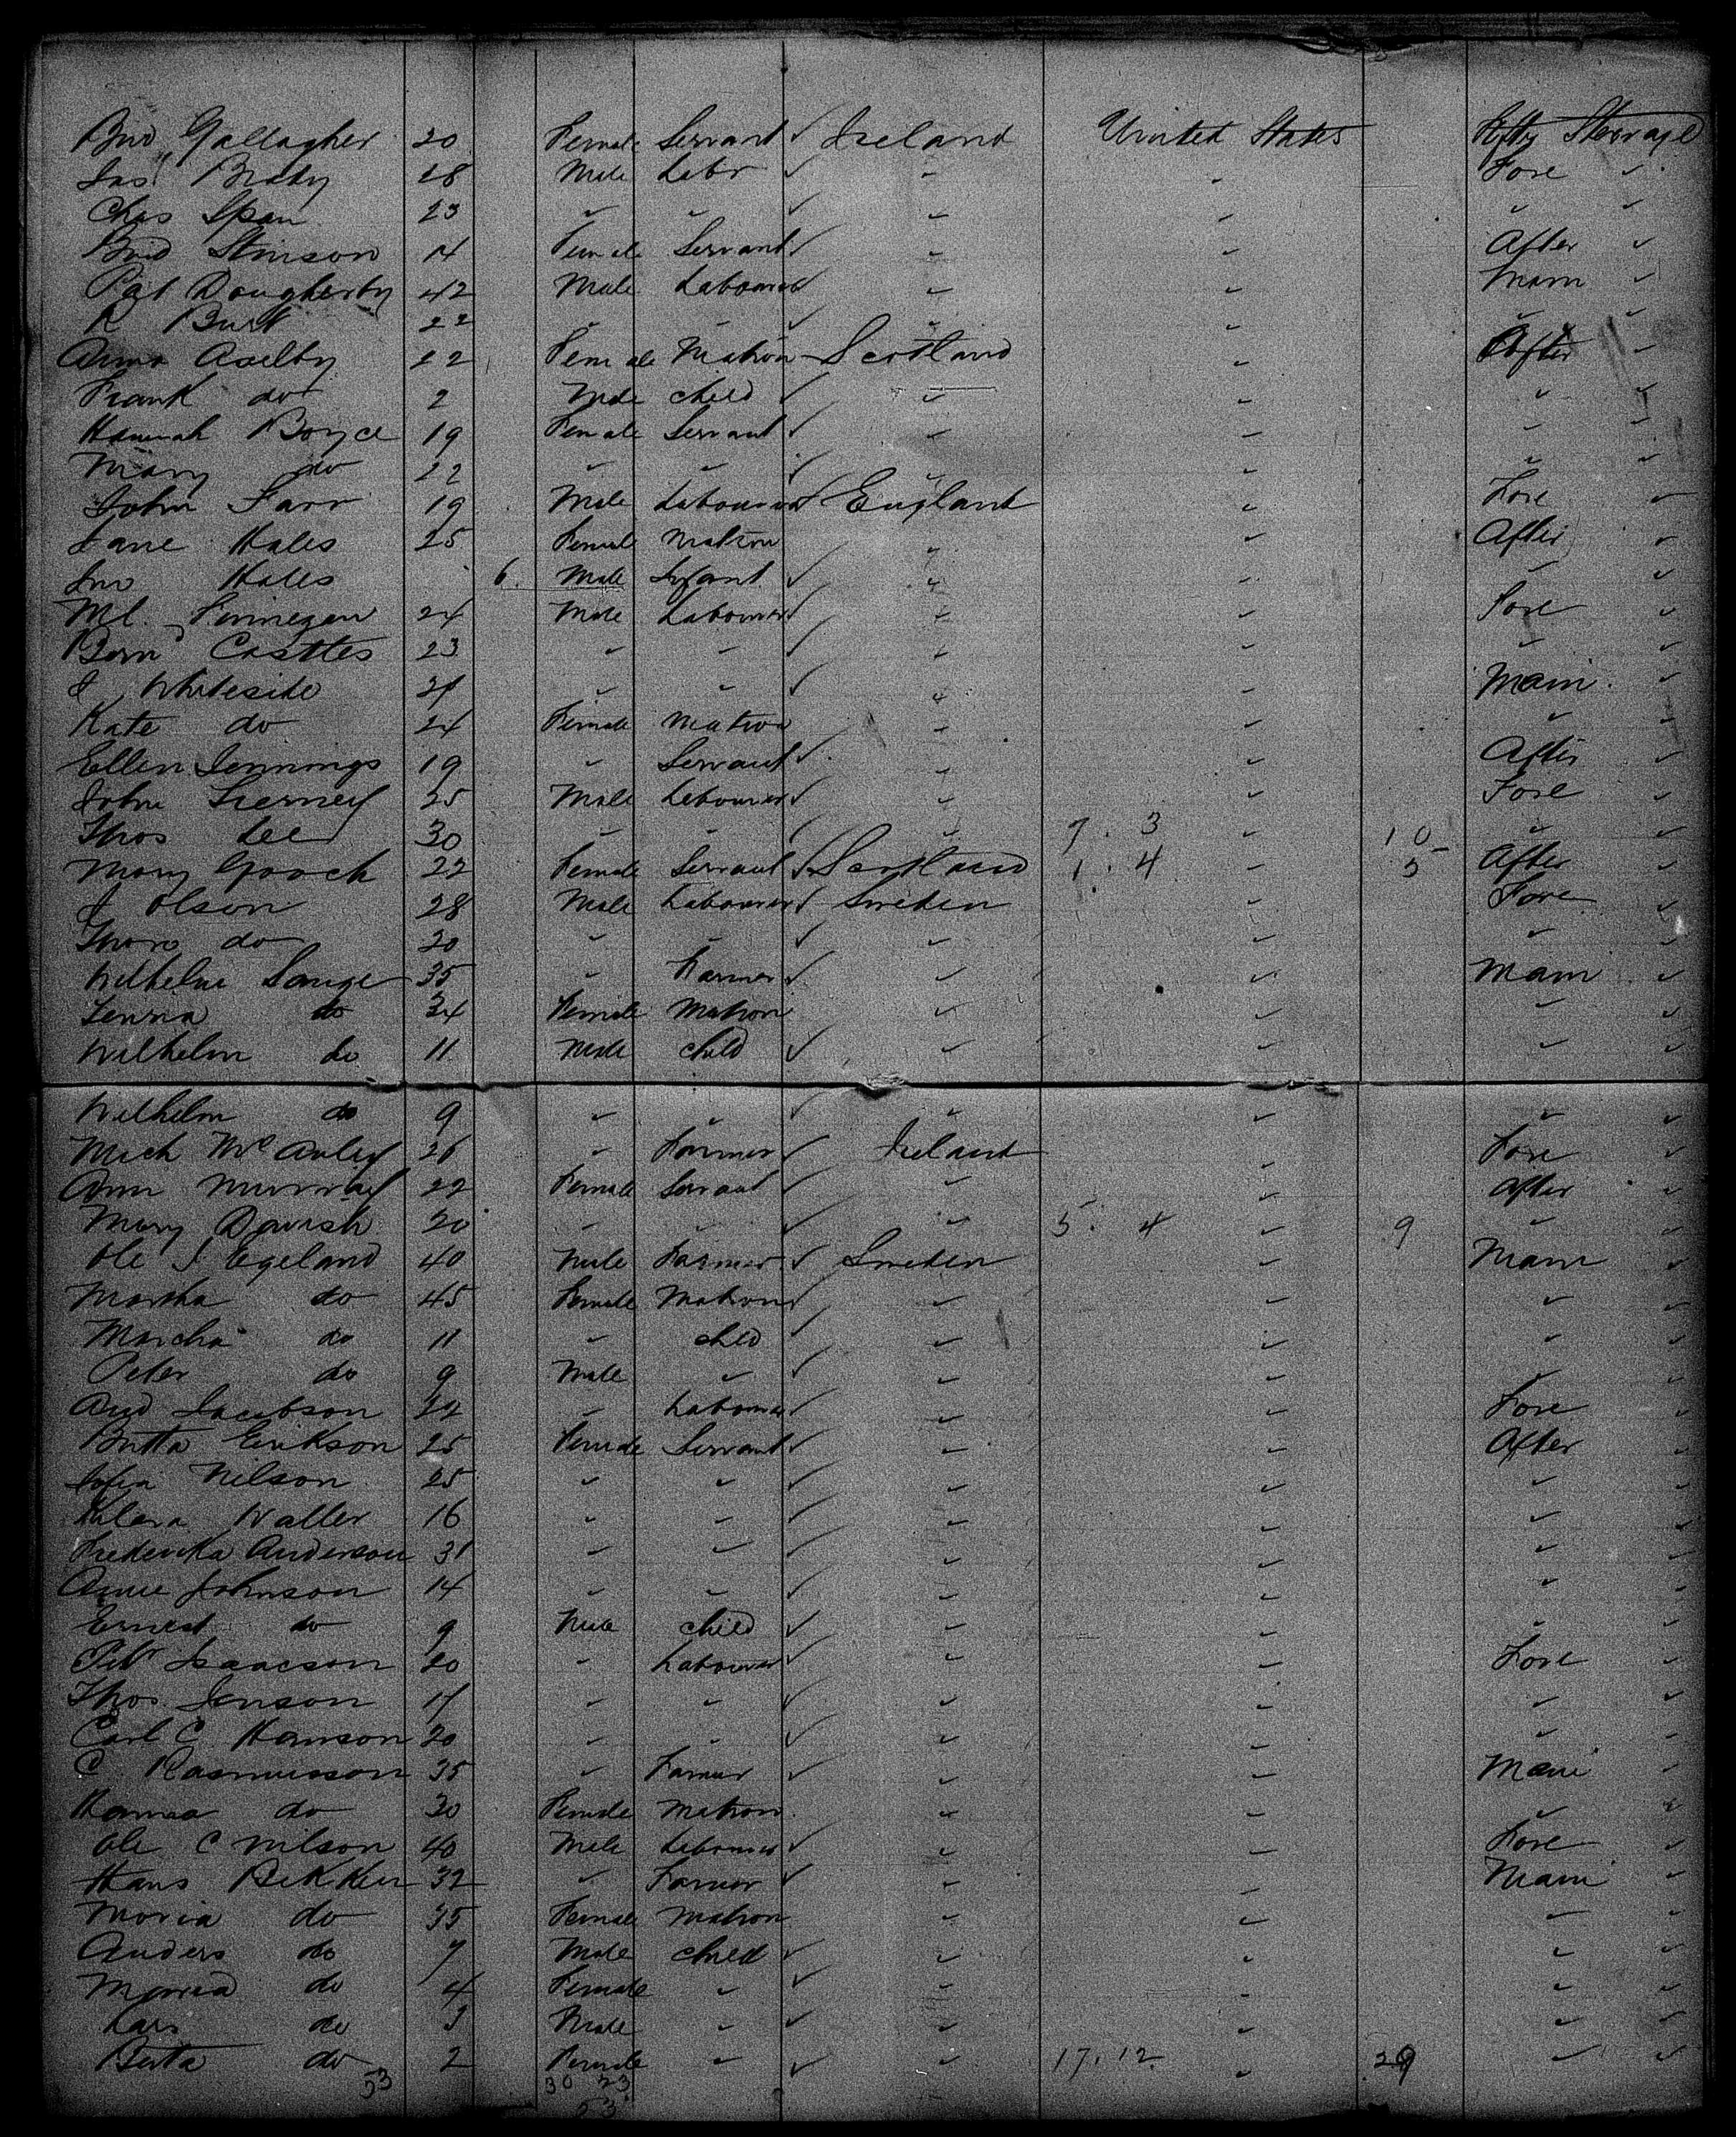 Brid Gallagher 20 Female Servant ✓ Ireland United States After Steerage
Jas Brady 28 Male Labr ✓ " " Fore "
Chas Span 23 " " ✓ " " " "
Brid Stinson 14 Female Servant ✓ " " After "
Pat Dougherty 42 Male Labourer " " Main "
R Burt 22 " " ✓ " " " "
Anna Aselby 22 Female Matron Scotland " After "
Frank do 2 Male child ✓ " " " "
Hannah Boyce 19 Female Servant ✓ " " " "
Mary do 22 " " ✓ " " " "
John Farr 19 Male Labourer England " Fore "
Jane Hales 25 Female Matron " " After "
Jno Hales 6 Male Infant ✓ " " " "
Ml. Finnegan 24 Male Labourer ✓ " " Fore "
Bern Casttes 23 " " ✓ " " " "
J Whiteside 21 " " ✓ " " Main "
Kate do 24 Female Matron " " " "
Ellen Jennings 19 " Servant ✓ " " After "
John Tierney 25 Male Labourer ✓ " " Fore "
Thos Lee 30 " " ✓ " 7. 3 " 10 " "
Mary Gooch 22 Female Servant ✓ Scotland 1. 4 " 5 After "
J Olson 28 Male Labourer ✓ Sweden " Fore "
Thoro do 20 " " ✓ " " " "
Wilhelm Lange 35 " Farmer ✓ " " Main "
Lenna do 34 Female Matron " " " "
Wilhelm do 11 Male child ✓ " " " "
Wilhelm do 9 " " ✓ " " " "
Mich McAuley 26 " Farmer ✓ Ireland " Fore "
Ann Murray 22 Female Servant ✓ " " After "
Mary Davish 20 " " ✓ " 5. 4 " 9 " "
Ole J Egeland 40 Male Farmer ✓ Sweden " Main "
Martha do 45 Female Matron " " " "
Marcha do 11 " child ✓ " " " "
Peter do 9 Male " ✓ " " " "
And Jacobson 22 " Labourer ✓ " " Fore "
Britta Erikson 25 Female Servant ✓ " " After "
Sofia Nilson 25 " " ✓ " " " "
Klara Waller 16 " " ✓ " " " "
Frederika Anderson 31 " " ✓ " " " "
Anne Johnson 14 " " ✓ " " " "
Ernest do 9 Male child ✓ " " " "
Petr Isaacson 20 " Labourer ✓ " " Fore "
Thos Jenson 17 " " ✓ " " " "
Carl C Hanson 20 " " ✓ " " " "
C Rasmusson 35 " Farmer ✓ " " Main "
Hanna do 30 Female Matron " " " "
Ole C Nilson 40 Male Labourer ✓ " " Fore "
Hans Bekken 32 " Farmer ✓ " " Main "
Maria do 35 Female Matron " " " "
Anders do 7 Male child ✓ " " " "
Maria do 4 Female " ✓ " " " "
Lars do 3 Male " ✓ " " " "
Berta do 2 Female " ✓ " 17. 12 " 29 " "
53 30 23
53